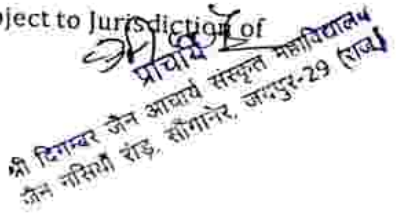 ject to Jurisdiction of
प्राचार्य
श्री दिगम्बर जैन आचार्य संस्कृत महाविद्यालय
जैन नसियाँ रोड़, सांगानेर, जयपुर-29 (राज.)